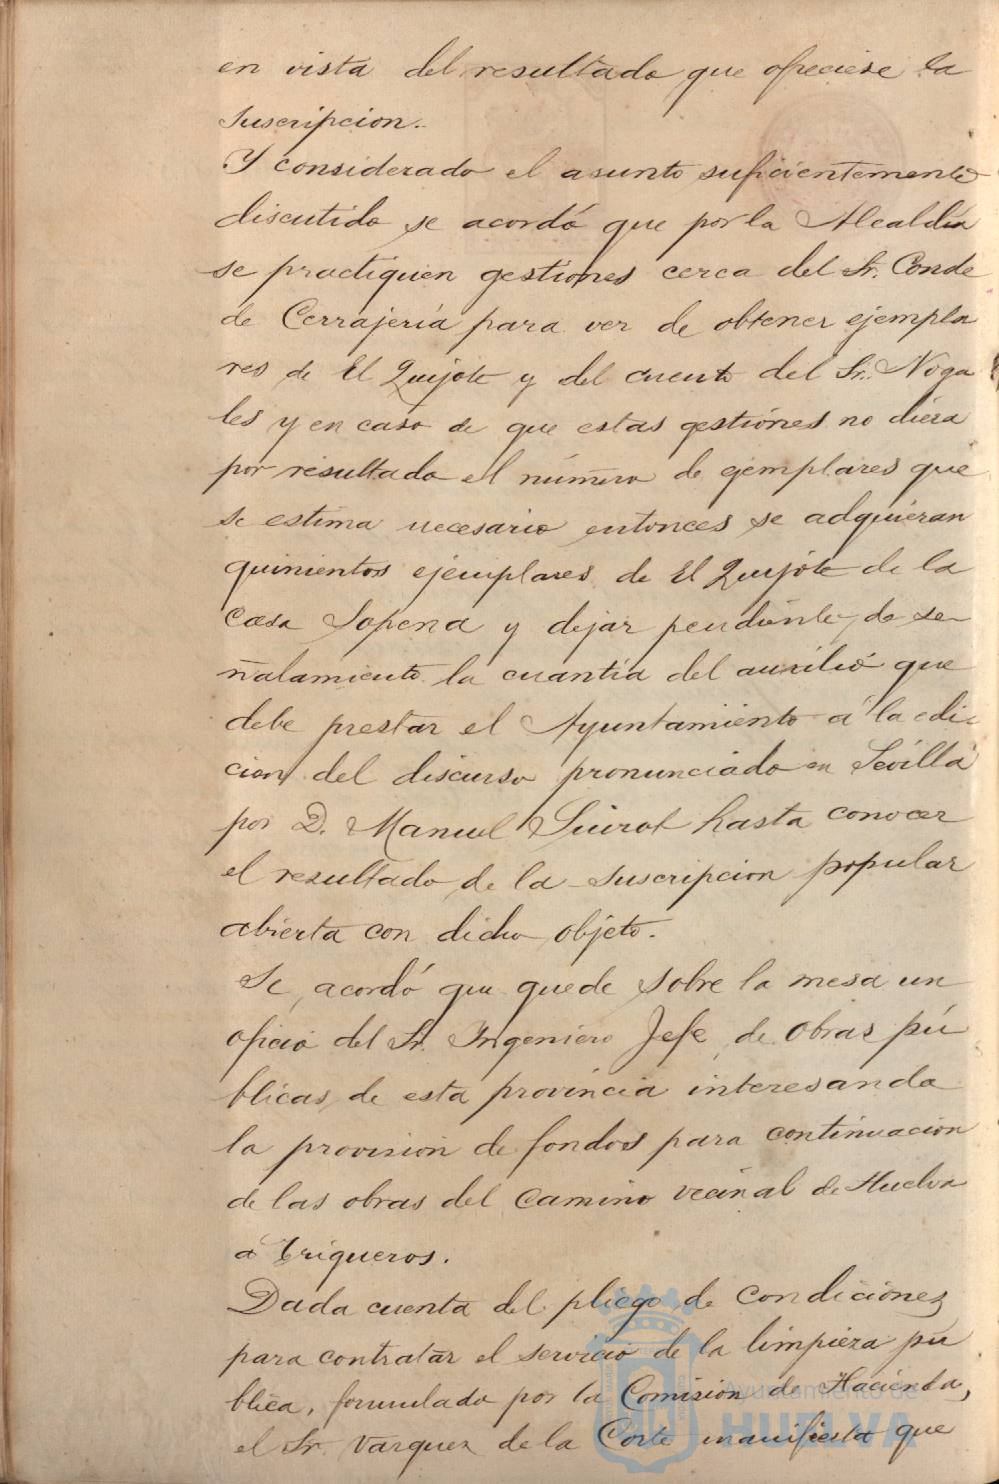 en vista del resultado que ofreciese la
suscripcion.
Y considerado el asunto suficientemente
discutido se acordó que por la Alcaldía
se practiquen gestiones cerca del Sr. Conde
de Cerrajería para ver de obtener ejempla
res de El Quijote y del cuento del Sr. Noga
les y en caso de que estas gestiones no diera
por resultado el número de ejemplares que
se estima necesario entonces se adquieran
quinientos ejemplares de El Quijote de la
Casa Sopena y dejar pendiente de se-
ñalamiento la cuantía del auxilio que
debe prestar el Ayuntamiento á la edi-
cion del discurso pronunciado en Sevilla
por D. Manuel Siurot hasta conocer
el resultado de la suscripcion popular
abierta con dicho objeto.
Se acordó que quede sobre la mesa un
oficio del Sr. Ingeniero Jefe de Obras pú
blicas de esta provincia interesando
la provision de fondos para continuacion
de las obras del camino vecinal de Huelva
á Trigueros.
Dada cuenta del pliego de condiciones
para contratar el servicio de la limpieza pú
blica, formulado por la Comision de Hacienda,
el Sr. Vazquez de la Corte manifiesta que
Ayuntamiento de
HUELVA